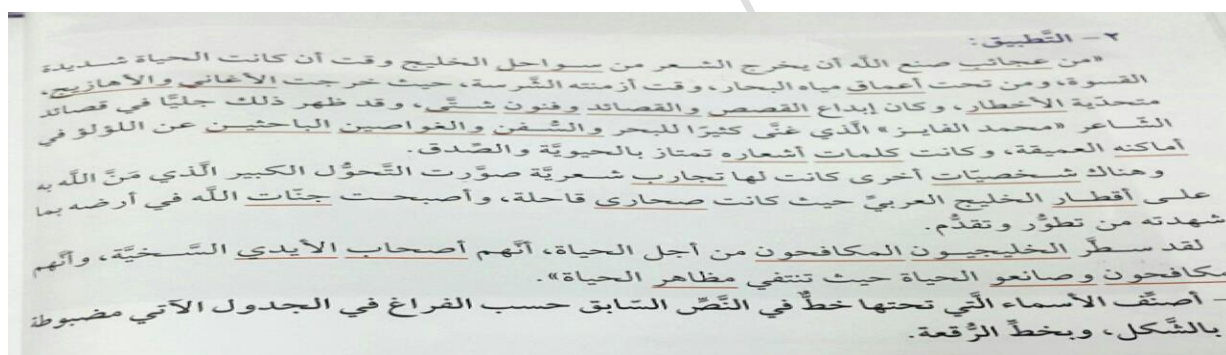 ٢ - التَّطبيق:
«من عجائب صنع الله أن يخرج الشعر من سواحل الخليج وقت أن كانت الحياة شديدة
القسوة، ومن تحت أعماق مياه البحار، وقت أزمنته الشَّرسة، حيث خرجت الأغاني والأهازيج،
متحدّية الأخطار، وكان إبداع القصص والقصائد وفنون شتّى، وقد ظهر ذلك جليًّا في قصائد
الشَّاعر «محمد الفايز» الَّذي غنَّى كثيرًا للبحر والسُّفن والغواصين الباحثين عن اللؤلؤ في
أماكنه العميقة، وكانت كلمات أشعاره تمتاز بالحيويَّة والصِّدق.
وهناك شخصيّات أخرى كانت لها تجارب شعريَّة صوَّرت التَّحوُّل الكبير الَّذي مَنَّ اللَّه به
على أقطار الخليج العربيِّ حيث كانت صحارى قاحلة، وأصبحت جنّات اللَّه في أرضه بما
شهدته من تطوُّر وتقدُّم.
لقد سطَّر الخليجيون المكافحون من أجل الحياة، أنَّهم أصحاب الأيدي السَّخيَّة، وأنَّهم
مكافحون وصانعو الحياة حيث تنتفي مظاهر الحياة».
- أصنِّف الأسماء الَّتي تحتها خطٌّ في النَّصِّ السّابق حسب الفراغ في الجدول الآتي مضبوطة
بالشَّكل، وبخطِّ الرُّقعة.